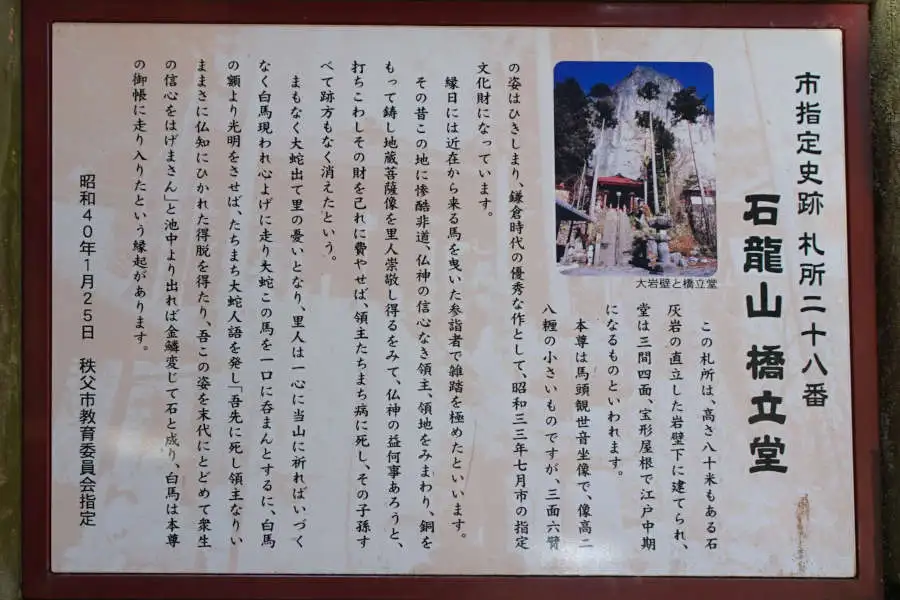 市指定史跡 札所二十八番
石龍山 橋立堂
大岩壁と橋立堂
この札所は、高さ八十米もある石
灰岩の直立した岩壁下に建てられ、
堂は三間四面、宝形屋根で江戸中期
になるものといわれます。
本尊は馬頭観世音坐像で、像高二
八糎の小さいものですが、三面六臂
の姿はひきしまり、鎌倉時代の優秀な作として、昭和三三年七月市の指定
文化財になっています。
縁日には近在から来る馬を曳いた参詣者で雑踏を極めたといいます。
その昔この地に惨酷非道、仏神の信心なき領主、領地をみまわり、銅を
もって鋳し地蔵菩薩像を里人崇敬し得るをみて、仏神の益何事あろうと、
打ちこわしその財を己れに費やせば、領主たちまち病に死し、その子孫す
べて跡方もなく消えたという。
まもなく大蛇出て里の憂いとなり、里人は一心に当山に祈ればいづく
なく白馬現われ心よげに走り大蛇この馬を一口に呑まんとするに、白馬
の額より光明をさせば、たちまち大蛇人語を発し「吾先に死し領主なりい
ままさに仏知にひかれた得脱を得たり、吾この姿を末代にとどめて衆生
の信心をはげまさん」と池中より出れば金鱗変じて石と成り、白馬は本尊
の御帳に走り入りたという縁起があります。
昭和40年1月25日 秩父市教育委員会指定